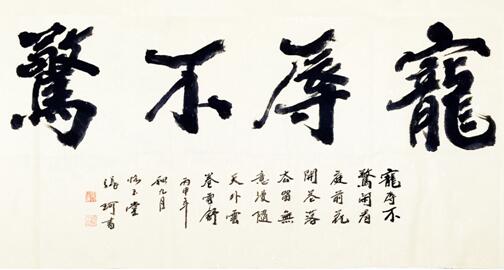 寵辱不驚
寵辱不
驚閒看
庭前花
開花落
去留無
意漫隨
天外雲
卷雲舒
丙申年
秋九月
玉堂
張珂書